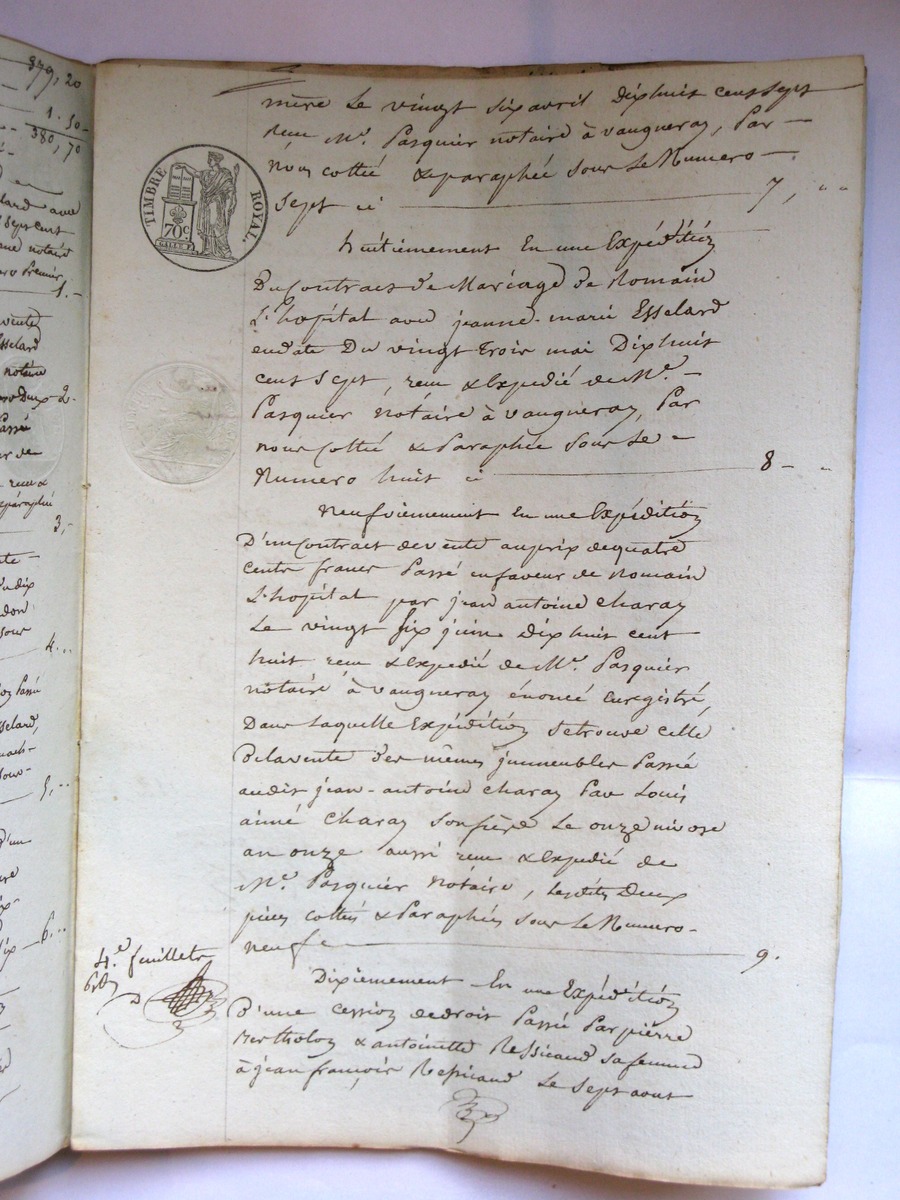 379, 20
1. 50
380, 70
mère Le vingt six avril Dixhuit cent sept
recu Mr. Pasquier notaire à vaugneray, Par
nous cotté & paraphée sous Le Numero
sept ci 7, " "
TIMBRE ROYAL.
70c.
huitiemement En une Expédition
Du Contract de Mariage de Romain
L'hopital avec jeanne-marie Esselard
endate Du vingt trois mai Dixhuit
cent sept, recu & Expedié de Me.
Pasquier notaire à vaugneray, Par
nous cotté & Paraphée sous Le
Numero huit ci 8 - "
Neufviemement En une Expédition
D'un Contract devente auprix dequatre
cents francs Passé en faveur de Romain
L'hopital par jean antoine Charay
Le vingt six juin Dixhuit cent
huit recu & Expedié de Me. Pasquier
notaire à vaugneray énoncé Enregistré,
Dans Laquelle Expédition setrouve celle
Delavente des mêmes immeubles Passée
audit jean-antoine Charay Par Louis
aimé Charay sonfrère Le onze nivose
an onze aussi recu & Expedié de
Me. Pasquier notaire, Lesdites Deux
pièces cottées & Paraphées sous Le Numero
neuf 9.
4.e feuillets
Dixiemement En une Expédition
D'une cession dedroit Passée Par pierre
Bertholon & antoinette Ressicaud safemme
à jean françois Ressicaud Le sept aout